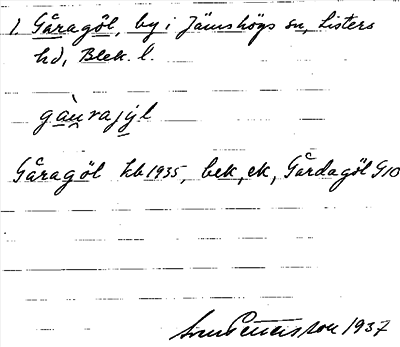 1. Gåragöl, by i Jämshögs sn, Listers
hd, Blek. l.
gàu̯rajýl
Gåragöl hb 1935, bek, ek, Gårdagöl G10
1937